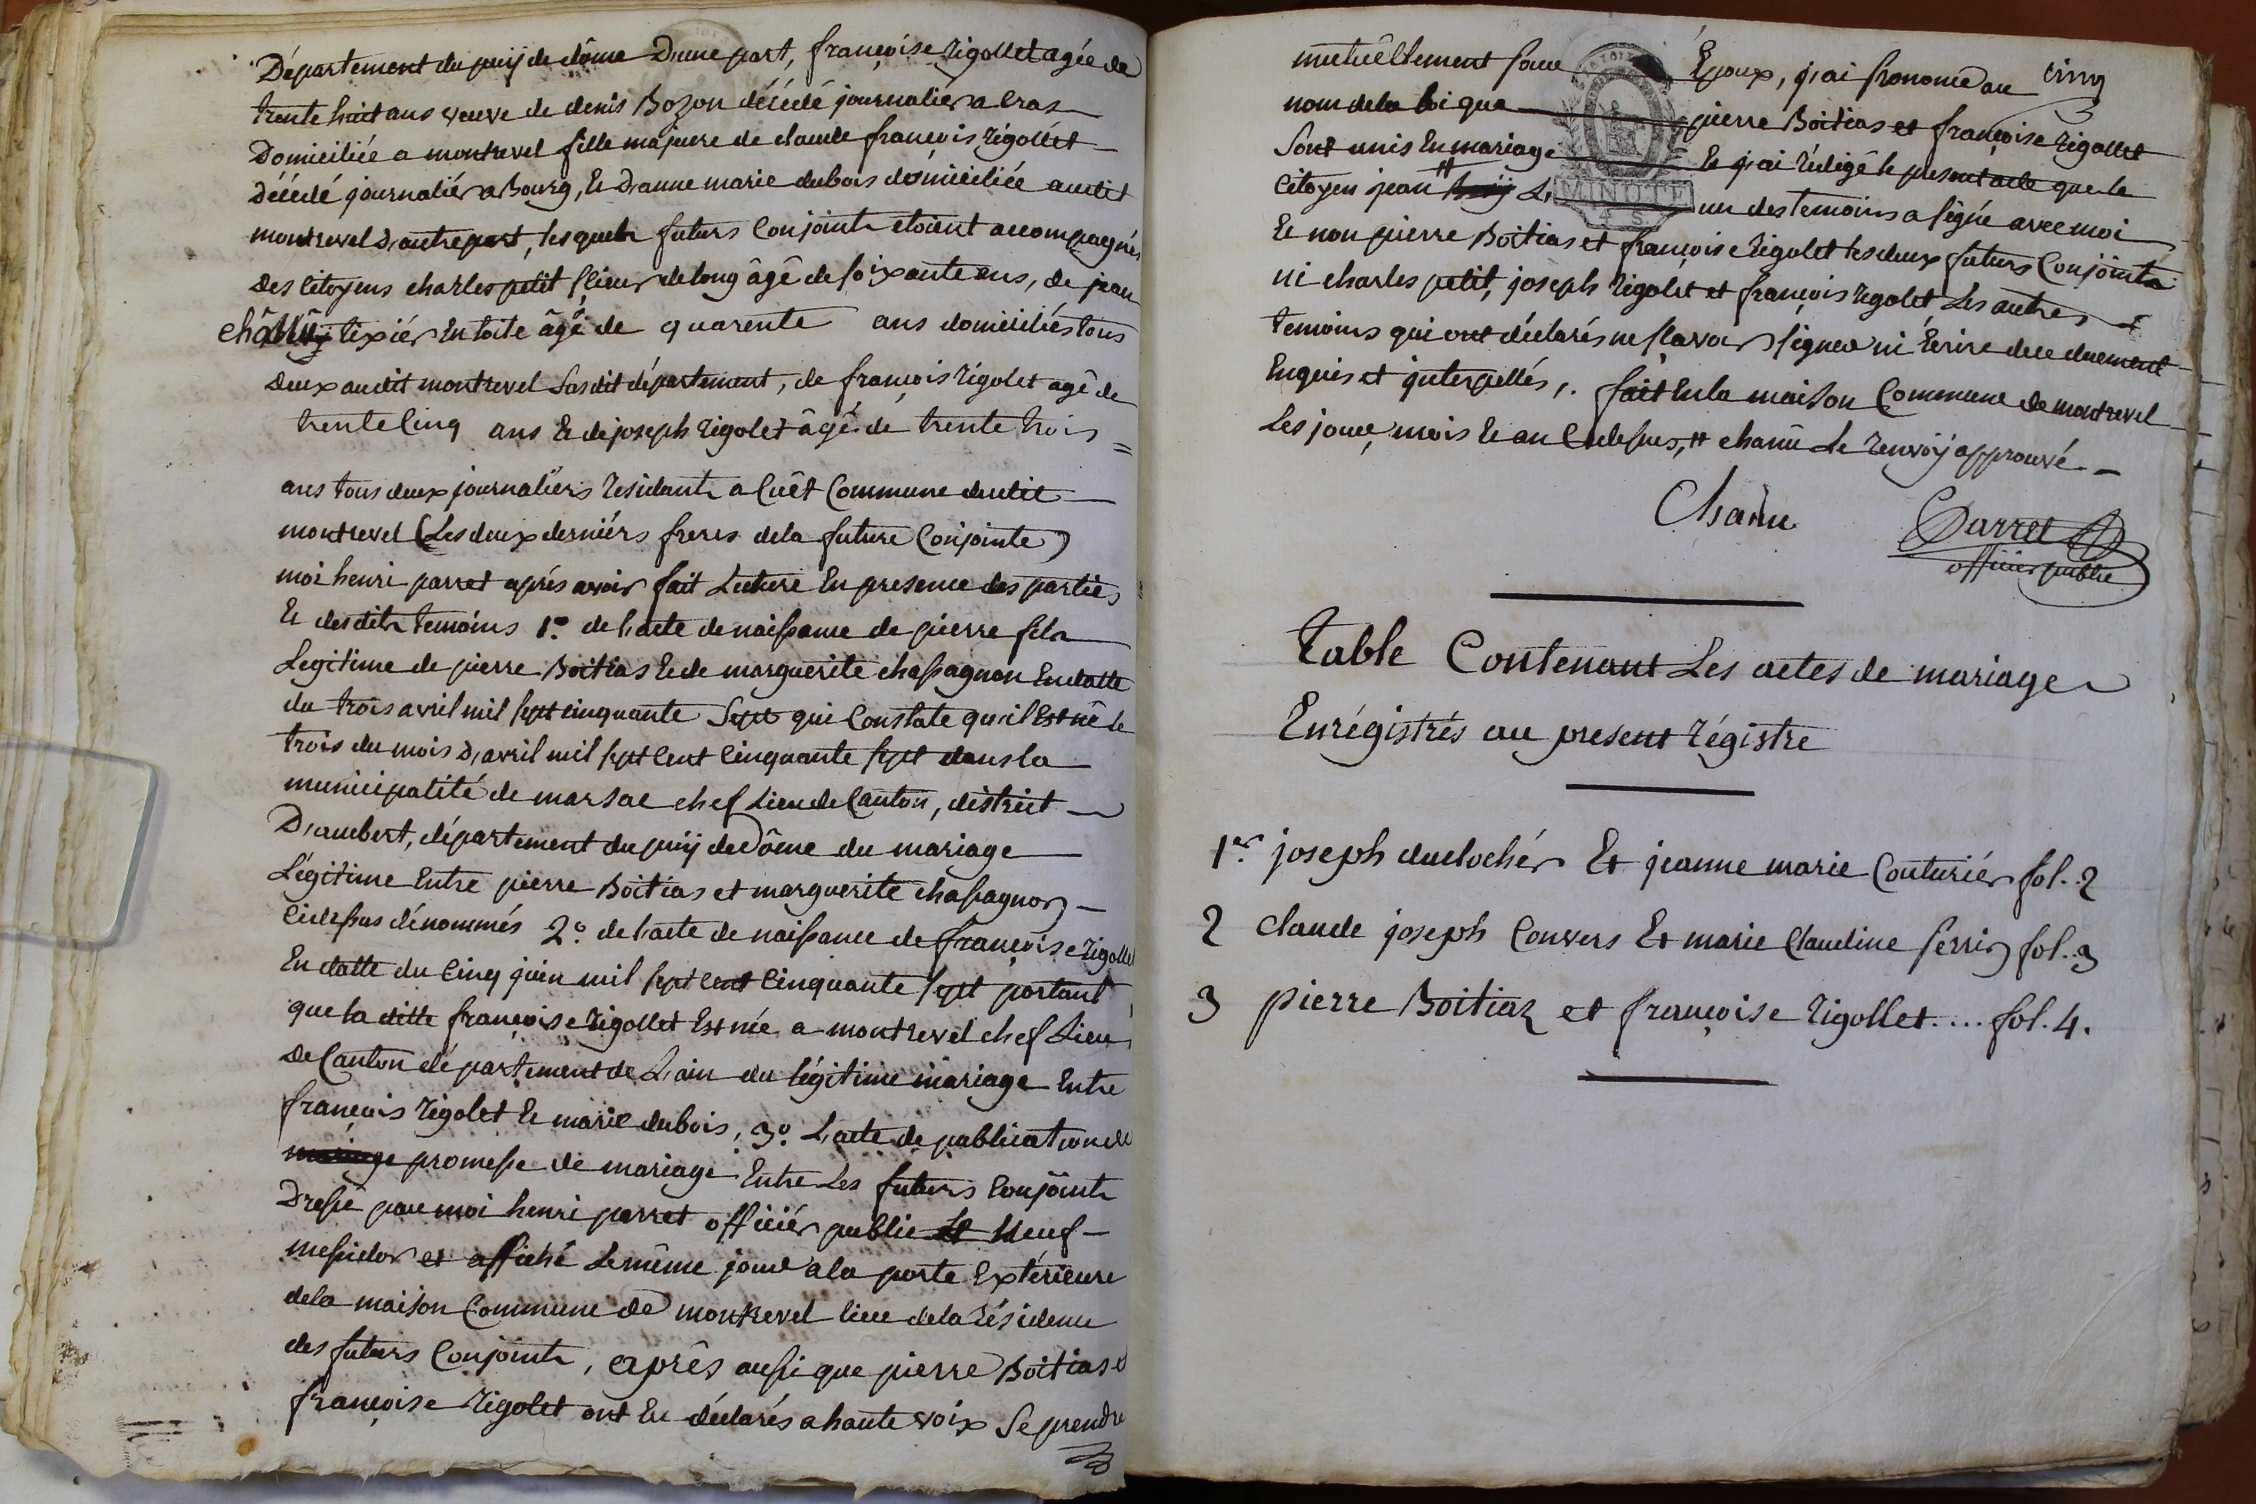 Département du puÿ de dôme D'une part, françoise rigollet agée de
trente huit ans veuve de denis Bozon décédé journaliér a Cras
Domiciliée a montrevel fille majeure de claude françois rigollet
Décédé journaliér a Bourg, Et D'anne marie dubois domiciliée audit
montrevel D'autre part, lesquels futurs Conjoints etoient accompagnés
Des Citoyens charles petit sieur de long âgé de soixante ans, de jean
chânû tixiér En toile âgé de quarente ans domiciliés tous
Deux audit montrevel susdit département, de françois rigolet agé de
trente Cinq ans Et de joseph rigolet âgé de trente trois =
ans tous deux journaliérs résidants a Cuêt Commune dudit
montrevel (Les deux derniérs freres de la future Conjointe)
moi henri parret aprés avoir fait Lecture En presence des parties
Et desdits temoins 1.o de l'acte de naissance de pierre fils
Legitime de pierre Boitias Et de marguerite chassagnon En datte
du trois avril mil sept cinquante Sept qui Constate qu'il Est né le
trois du mois d'avril mil sept Cent Cinquante sept dans la
municipalité de marsac chef Lieu de Canton, district
D'ambert, département du puÿ de Dôme du mariage
Légitime Entre pierre Boitias et marguerite chassagnon
Cidessus dénommés 2.o de l'acte de naissance de françoise rigollet
En datte du Cinq juin mil sept cent Cinquante sept portant
que la ditte françoise rigollet Est née a montrevel chef Lieu
de Canton département de L'ain du légitime mariage Entre
françois rigolet Et marie dubois, 3.o L'acte de publication de
mariage promesse de mariage Entre Les futurs Conjoints
Dressé par moi henri parret officiér public Le Neuf
messidor et affiché Le même jour a la porte Extérieure
de la maison Commune de montrevel lieu de la résidence
des futurs Conjoints, après aussi que pierre Boitias et
françoise rigolet ont Eu déclarés a haute voix Se prendre
cinq
mutuêllement pour Epoux, j'ai prononcé au
nom de la loi que pierre Boitias et françoise rigollet
Sont unis En mariage Et j'ai rédigé le present acte que le
Citoyen jean L'un des temoins a signé avec moi
MINUTE
4 S
Et non pierre Boitias et françoise rigolet les deux futurs Conjoints
ni charles petit, joseph rigolet et françois rigolet Les autres
temoins qui ont déclarés ne sçavoir signer ni Ecrire de ce duement
Enquis et interpellés, fait En la maison Commune de montrevel
Les jour, mois Et an Cidessus, # chanû Le renvoÿ approuvé
Chanu
Parret
officiér public
Table Contenant Les actes de mariage
Enrégistrés au present régistre
1.er joseph duclochér Et jeanne marie Couturiér fol.. 2
2 claude joseph Convers Et marie Claudine Perrin fol.. 3
3 pierre Boitiaz et françoise rigollet.... fol. 4.